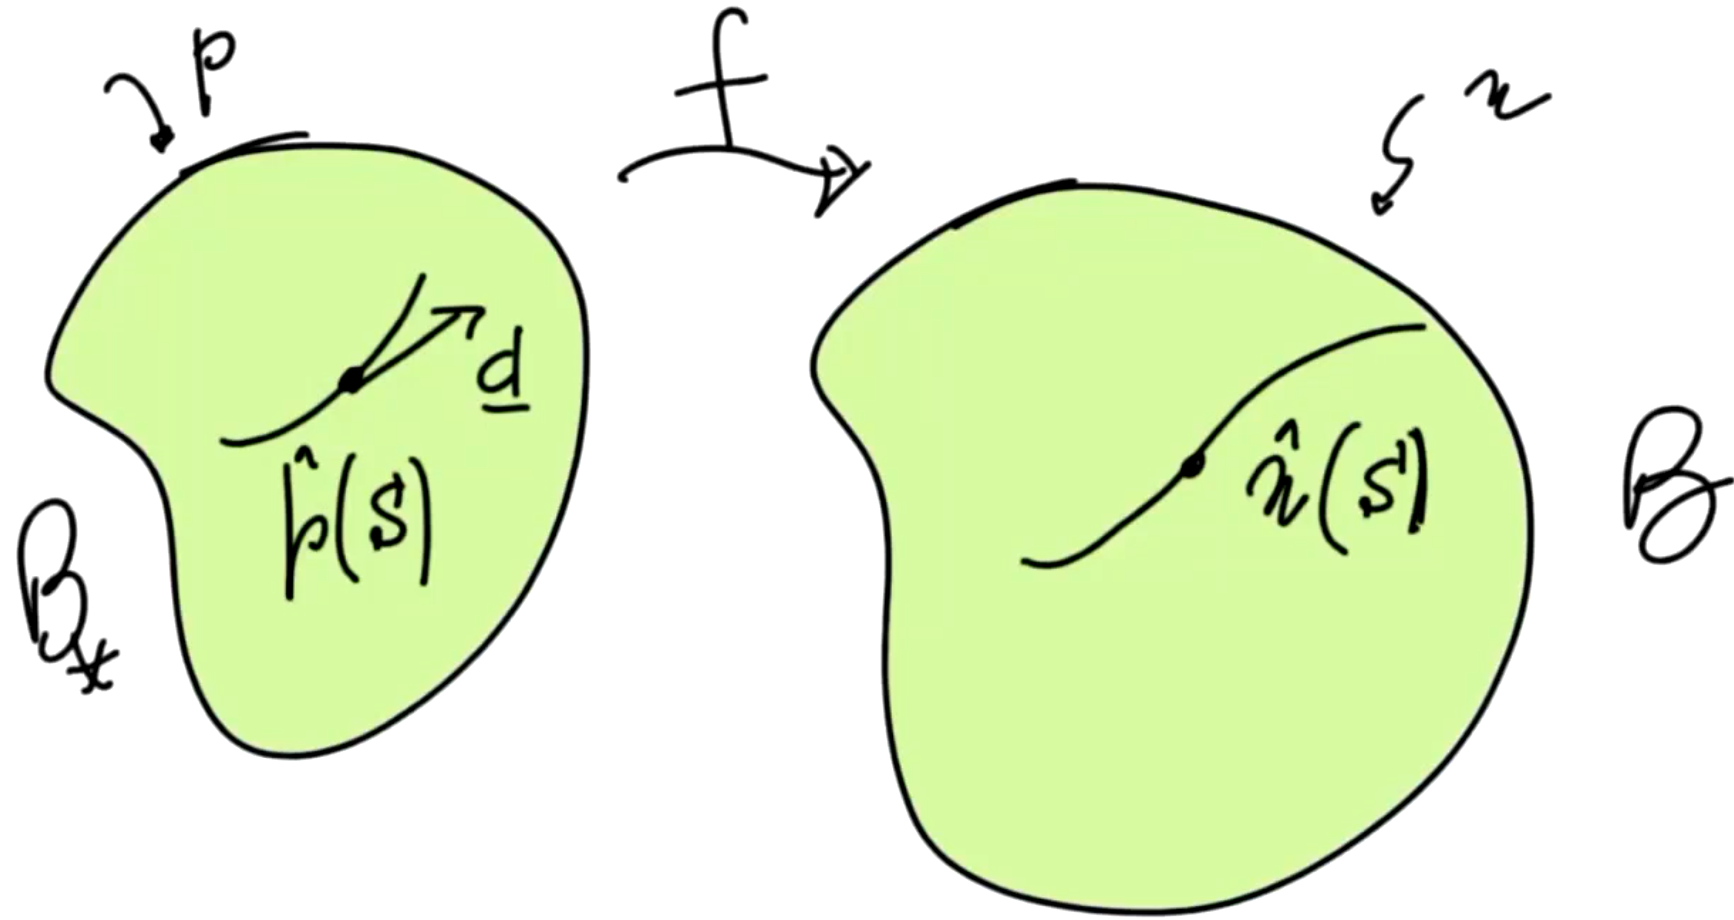 p
f
x
d
p̂(s)
x̂(s)
B
B*